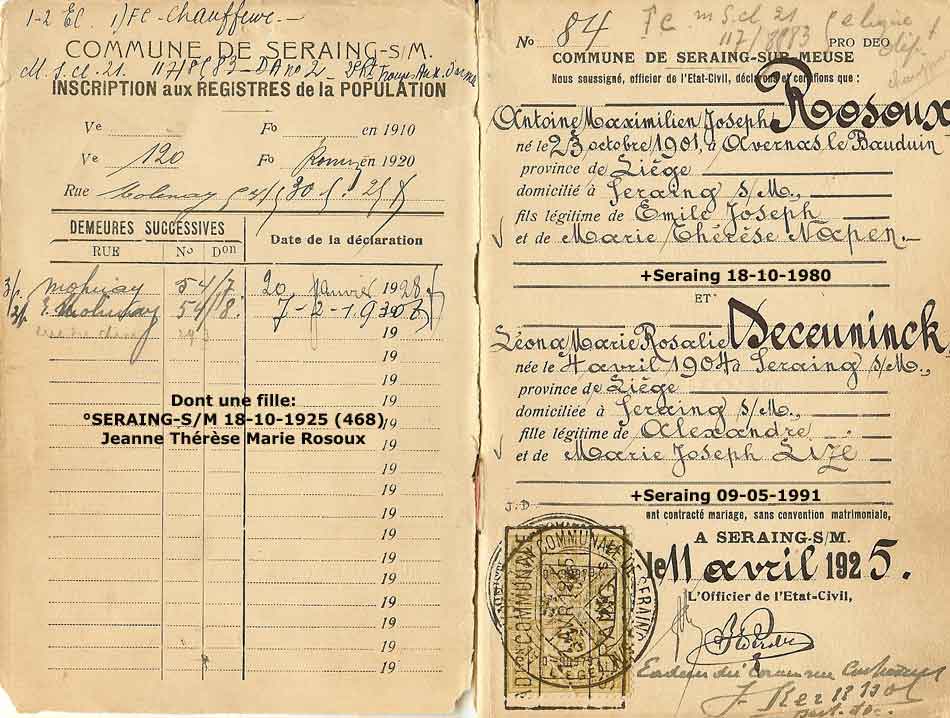 1-2 Ec 1) Fc Chauffeur
COMMUNE DE SERAING-S/M.
M. S. cl. 21. 117/8583 - DA no 2
INSCRIPTION aux REGISTRES de la POPULATION
Ve Fo en 1910
Ve 120 Fo en 1920
Rue
DEMEURES SUCCESSIVES
RUE No Don Date de la déclaration
Molinay 54/7 20 janvier 1928
Molinay 54/8. 7-2-1930
19
19
19
19
Dont une fille:
°SERAING-S/M 18-10-1925 (468)
19
Jeanne Thérèse Marie Rosoux
19
19
19
19
19
19
19
19
19
19
19
19
No 84 Fc m S.cl 21
117/8583 PRO DEO
COMMUNE DE SERAING-SUR-MEUSE
Nous soussigné, officier de l'Etat-Civil, déclarons et certifions que :
Antoine Maximilien Joseph Rosoux
né le 23 octobre 1901, à Avernas le Bauduin
province de Liége
domicilié à Seraing s/M.,
fils légitime de Emile Joseph
et de Marie Thérèse Napen.
+Seraing 18-10-1980
ET
Léona Marie Rosalie Deceuninck
née le 4 avril 1904 à Seraing s/M.,
province de Liége
domiciliée à Seraing s/M.,
fille légitime de Alexandre
et de Marie Joseph Lizé
+Seraing 09-05-1991
J.D
ont contracté mariage, sans convention matrimoniale,
A SERAING-S/M.
le 11 avril 1925.
L'Officier de l'Etat-Civil,
COMMUNALE DE SERAING
LIEGE